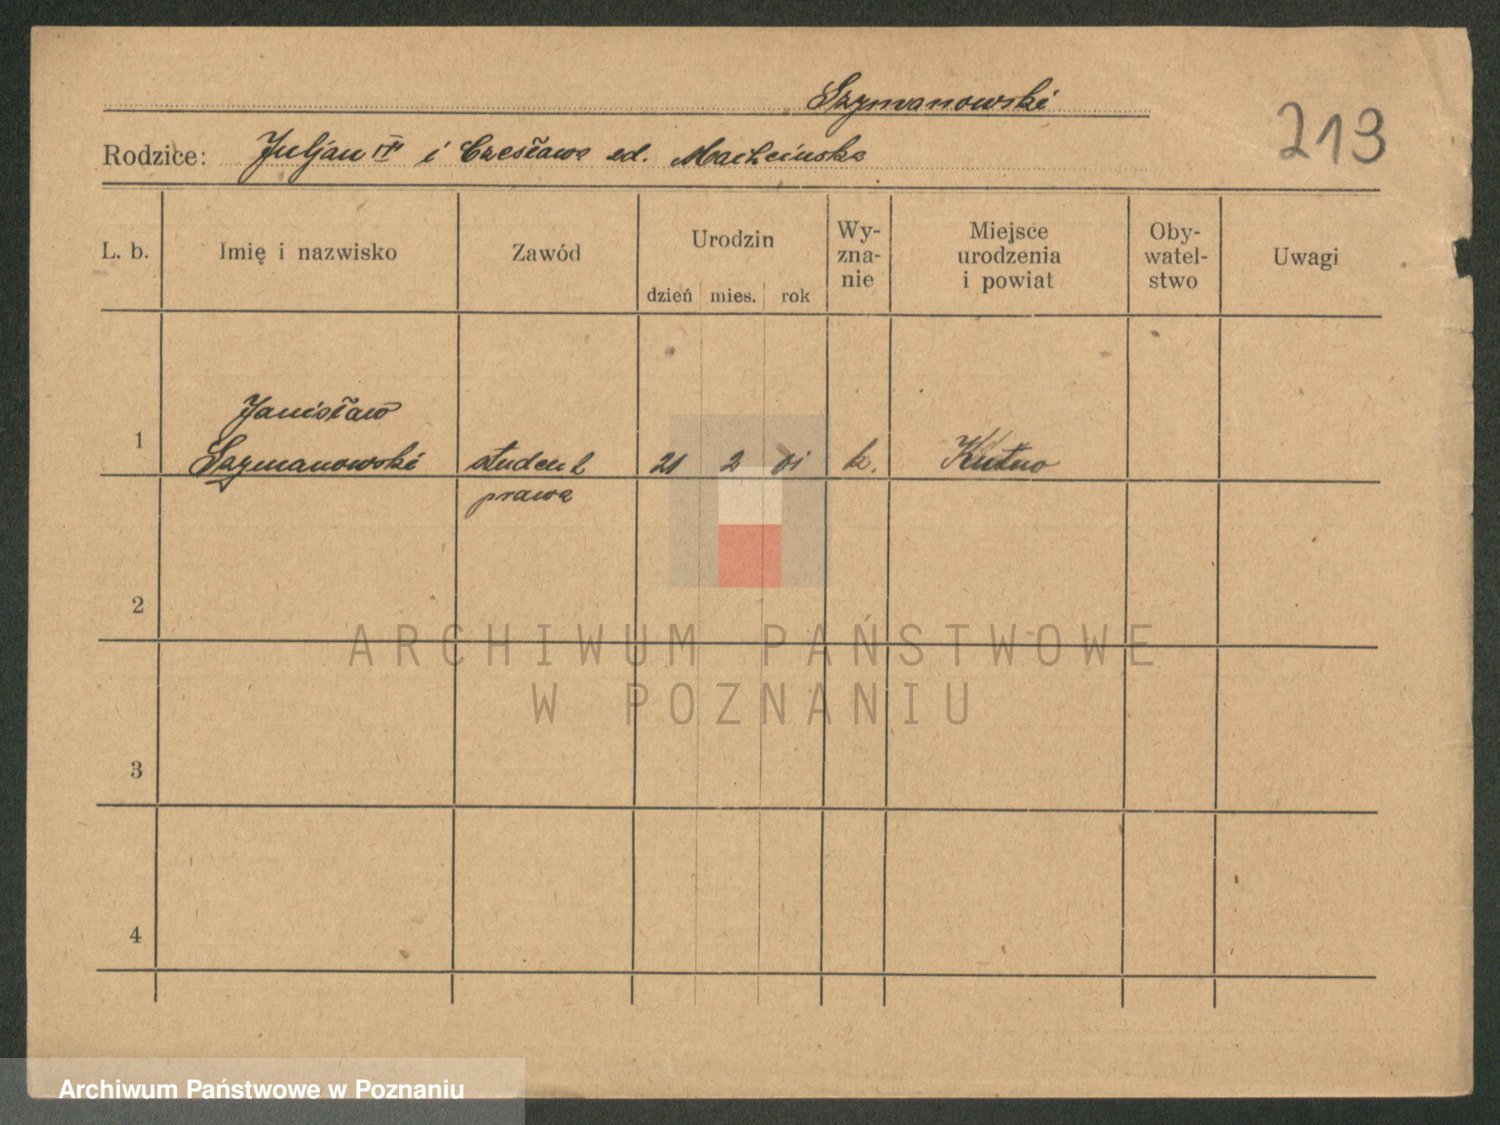 Szymanowski
213
Rodzice: Juljan i Czesława zd.
L. b. Imię i nazwisko Zawód Urodzin dzień mies. rok Wy-zna-nie Miejsce urodzenia i powiat Oby-watel-stwo Uwagi
Janisław
1 Szymanowski student 21 2 01 k. Kutno
prawa
2
ARCHIWUM PAŃSTWOWE
W POZNANIU
3
4
Archiwum Państwowe w Poznaniu